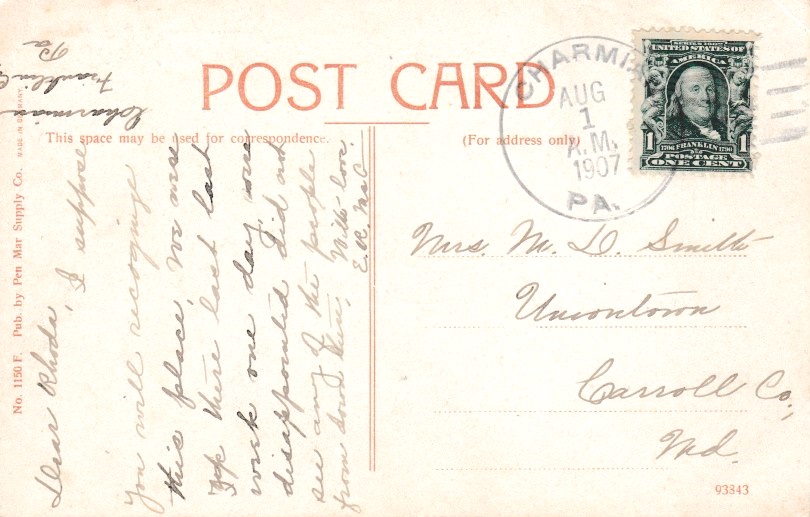 POST CARD
This space may be used for correspondence.
(For address only)
Charmian
Franklin Co
Pa
Dear Rhoda, I suppose
you will recognize
this place, we were
up there last last
week one day, was
disappointed did not
see any of the people
from down there, With love
E.
No. 1150 F. Pub. by Pen Mar Supply Co. MADE IN GERMANY
CHARMIAN
AUG
1
A.M.
1907
PA.
SERIES 1902
UNITED STATES OF
AMERICA
1 1
1706 FRANKLIN 1790
POSTAGE
ONE CENT
Mrs. M. D. Smith
Uniontown
Carroll Co.,
Md.
93343